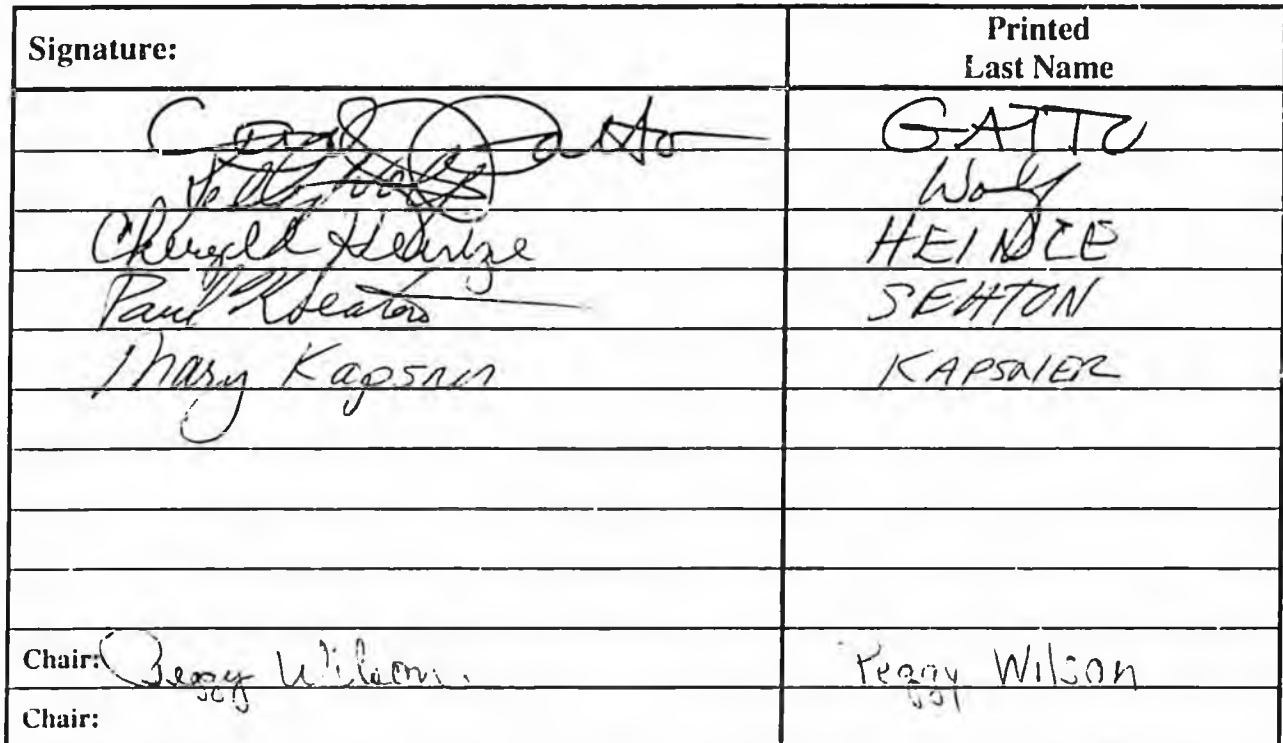 Signature: Printed
Last Name
GATTO
Wolf
Cheryll Heinze HEINZE
Paul Seaton SEATON
Mary Kapsner KAPSNER
Chair: Peggy Wilson Peggy Wilson
Chair: